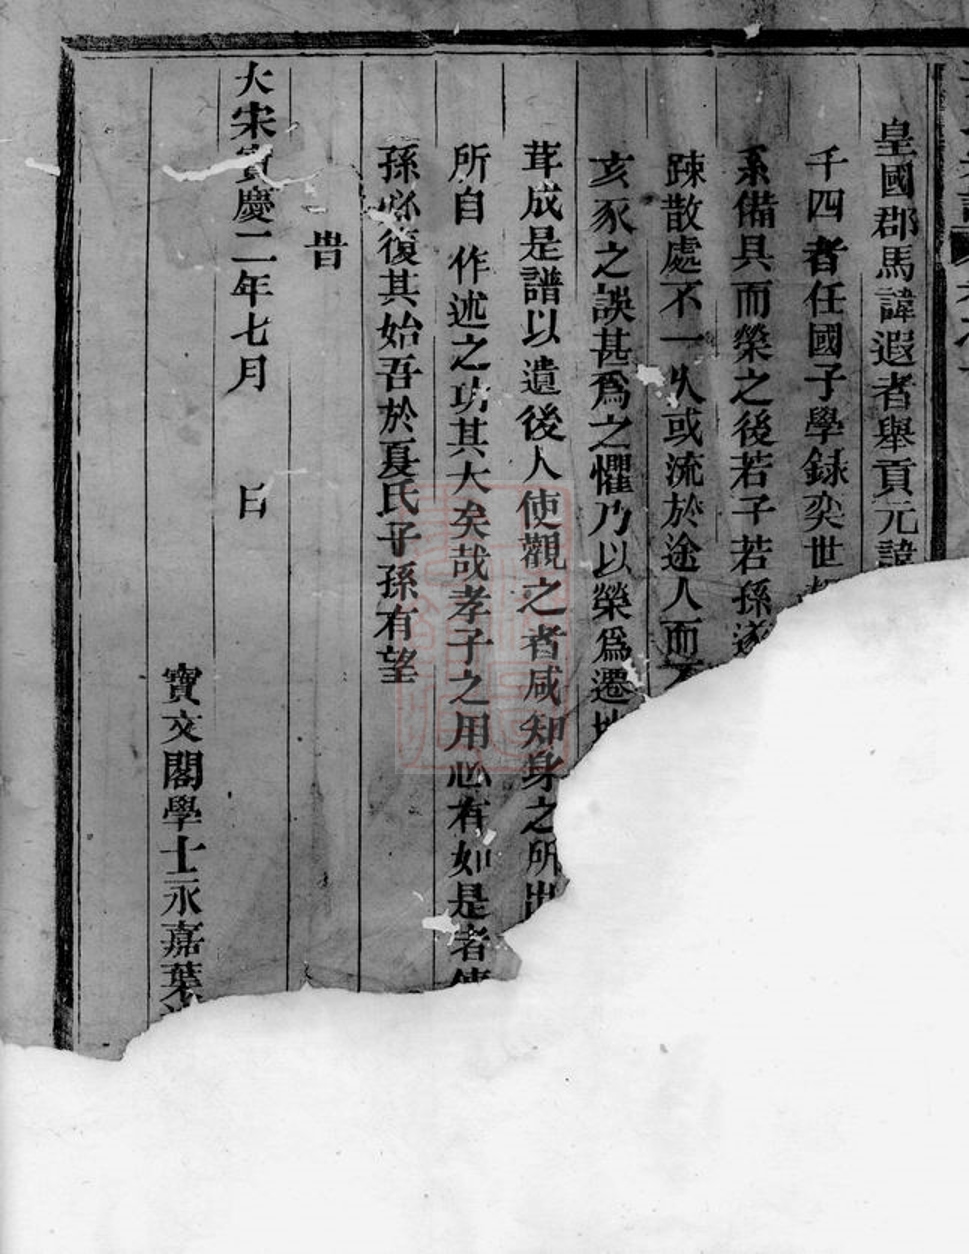 皇國郡馬諱遐者舉貢元諱
千四者任國子學録奕世
系備具而榮之後若子若孫遂
踈散處不一久或流於途人而不
亥豕之誤甚爲之懼乃以榮爲遷
茸成是譜以遺後人使觀之者咸知身之所出
所自 作述之功其大矣哉孝子之用心有如是者
孫必復其始吾於夏氏子孫有望
旹
大宋寶慶二年七月 日
寶文閣學士永嘉葉